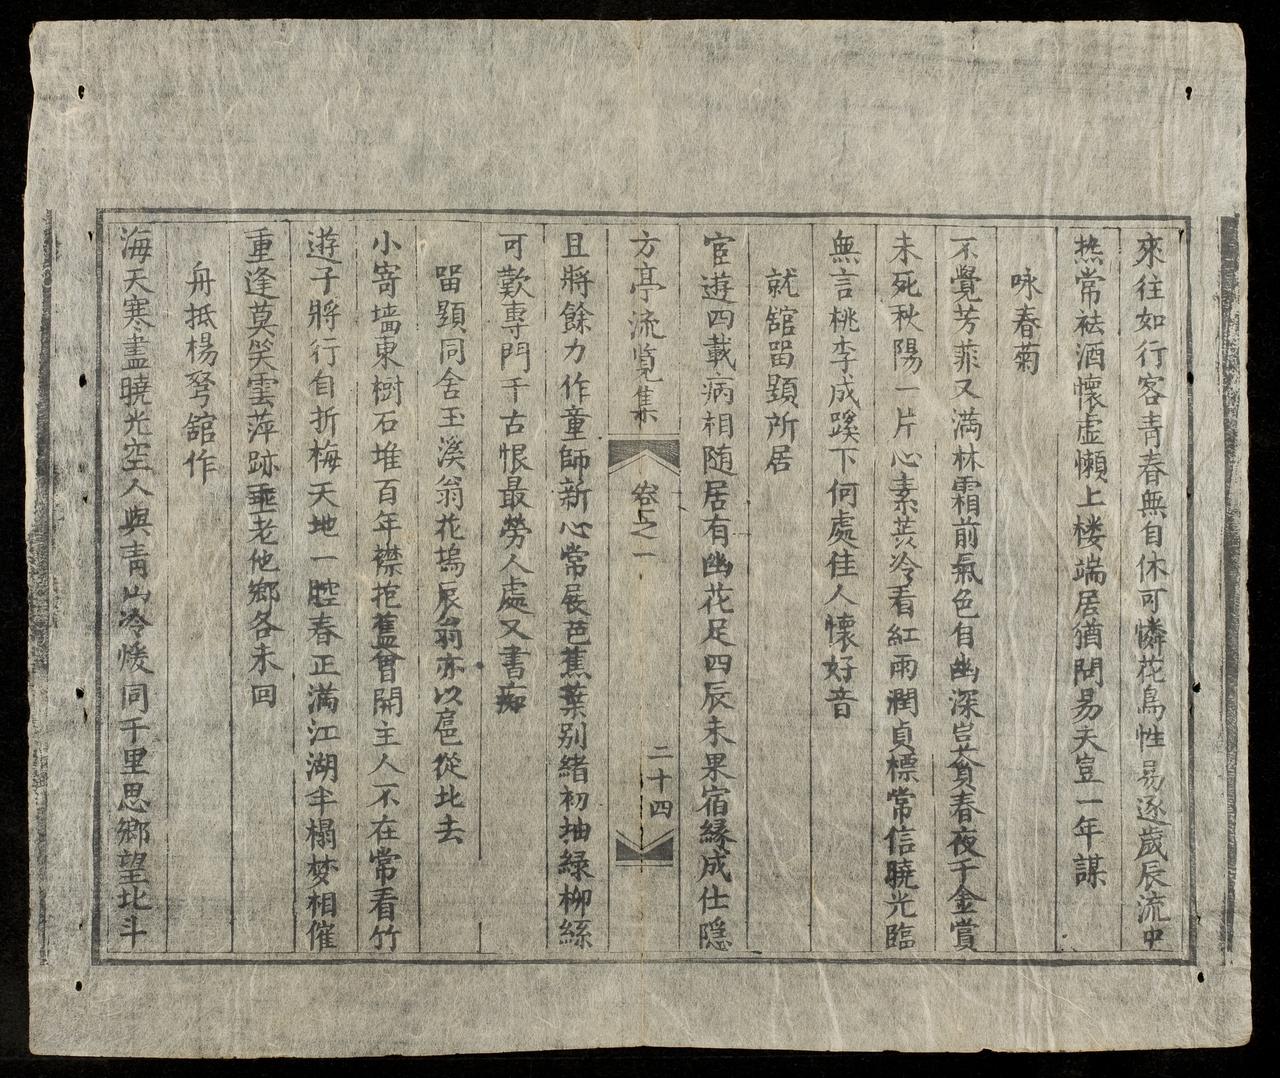 來往如行客青春無自休可憐花鳥性易逐歲辰流中
熱常祛酒懷虛懶上楼端居猶問易天豈一年謀
咏春菊
不覺芳菲又滿林霜前氣色自幽深豈貪春夜千金賞
未死秋陽一片心素炎冷看紅雨潤貞標常信曉光臨
無言桃李成蹊下何處佳人懷好音
就舘留題所居
宦遊四載病相随居有幽花足四辰未果宿縁成仕隱
方亭流覽集
卷之一
二十四
且將餘力作童師新心常展芭蕉葉別緒初抽綠柳絲
可歎專門千古恨最勞人處又書痴
留題同舍玉溪翁花塢辰翁亦以扈從北去
小寄墻東樹石堆百年襟抱舊曾開主人不在常看竹
遊子將行自折梅天地一腔春正滿江湖半榻梦相催
重逢莫笑雲萍跡垂老他鄉各未回
舟抵楊弩舘作
海天寒盡曉光空人與青山冷悛同千里思鄉望北斗